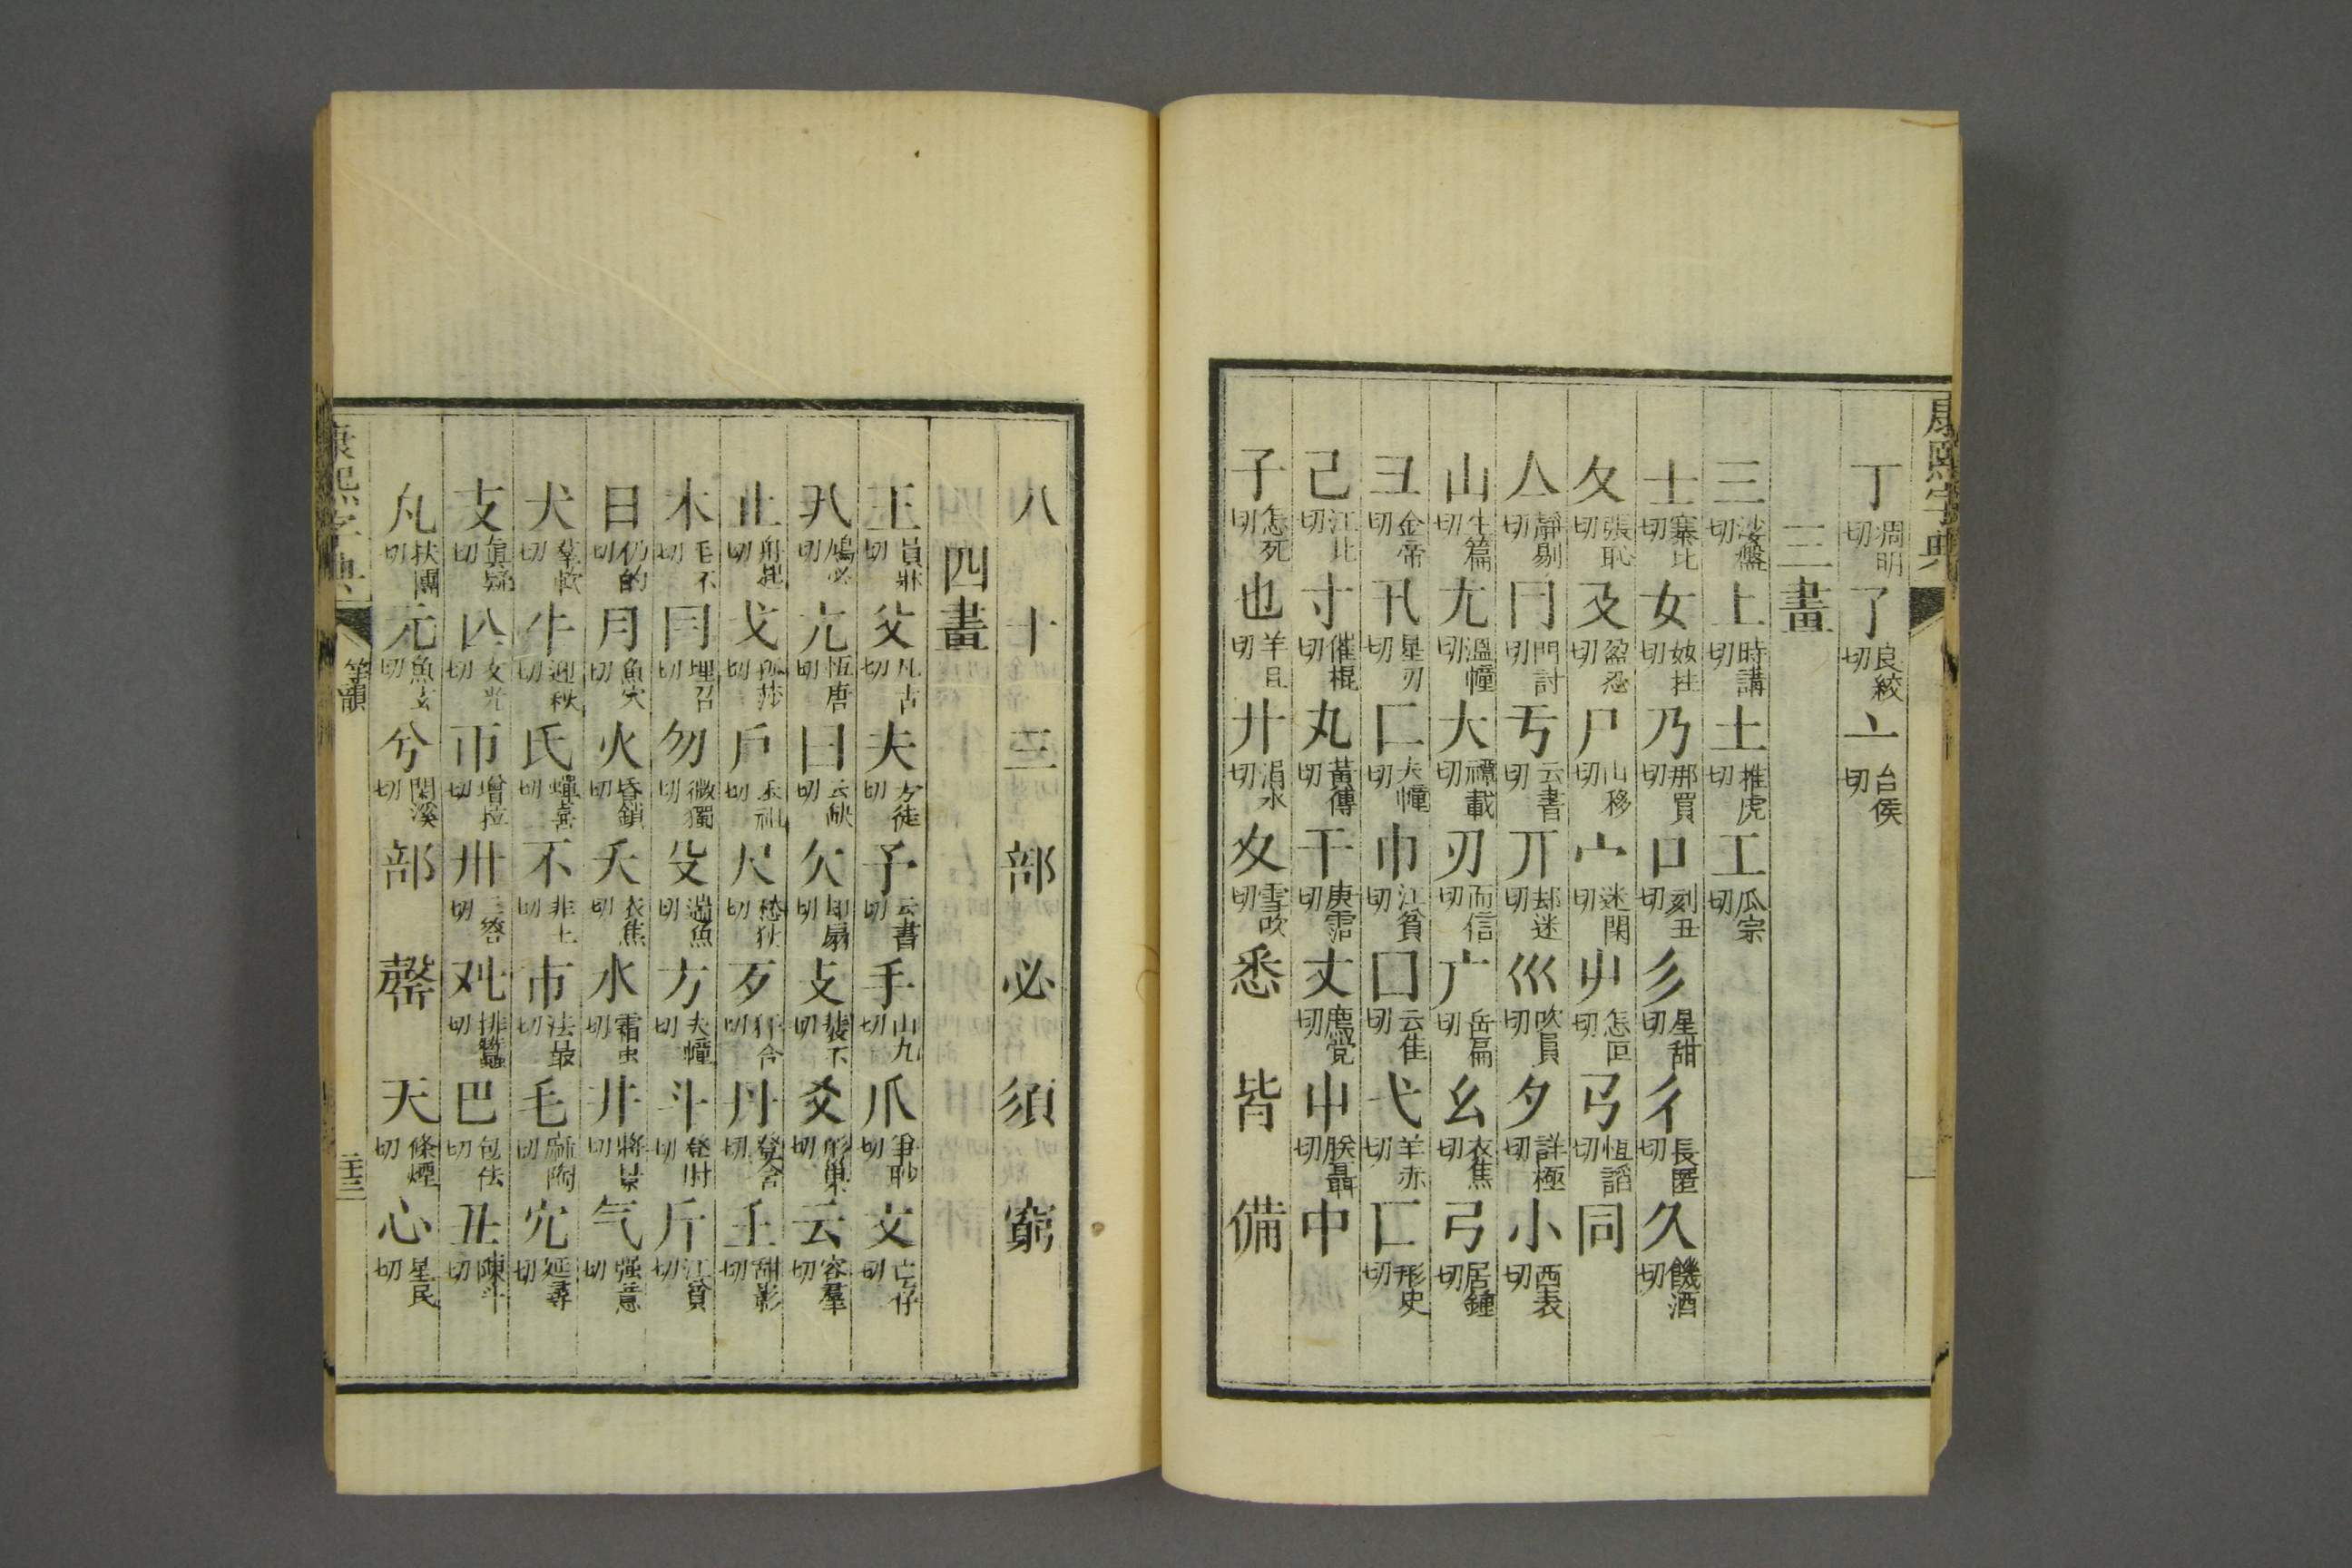 康熙字典
丁凋明切了良絞切亠台侯切
三畫
三沙盤切上時講切土推虎切工瓜宗切
士寨比切女妓拄切乃那買切口刻丑切彡星甜切彳長匿切久饑酒切
夂張恥切及盈忍切尸山移切宀迷閑切屮怎回切弓恆謟切同
亼靜剔切冃門討切亏云書切丌却迷切巛吹員切夕詳極切小西表切
山生篇切尢溫幢切大禫載切刃而信切广岳扁切幺衣焦切弓居鍾切
彐金帝切卂星刃切匚夫幢切巾江貧切囗云隹切弋羊赤切匸形史切
己江比切寸催棍切丸黃傳切干庚霑切丈塵党切屮朕聶切中
子怎死切也羊且切廾涓水切夊雪吹切悉皆備
八十三部必須窮
四畫
王員牀切父凡古切夫方徒切予云書切手山九切爪爭眇切文亡仔切
亢恆唐切曰云缺切欠却扇切攴裝不切爻形巢切云容羣切
止戈戶尺愁狄切歹丹登含切壬甜影切
木毛不切冃埋召切勿微獨切殳湍魚切方夫幢切斗登肘切斤江貧切
日仍的切月魚穴切火昏鎖切夭衣焦切水霜虫切井將景切气强意切
犬羣軟切牛迎秋切氏蟬喜切不非土切巿法最切毛冘延尋切
支眞疑切帀增拉切卅巴包佉切丑陳斗切
凡扶團切元魚玄切兮閑溪切部罄天條煙切心星民切
康熙字典
等韻